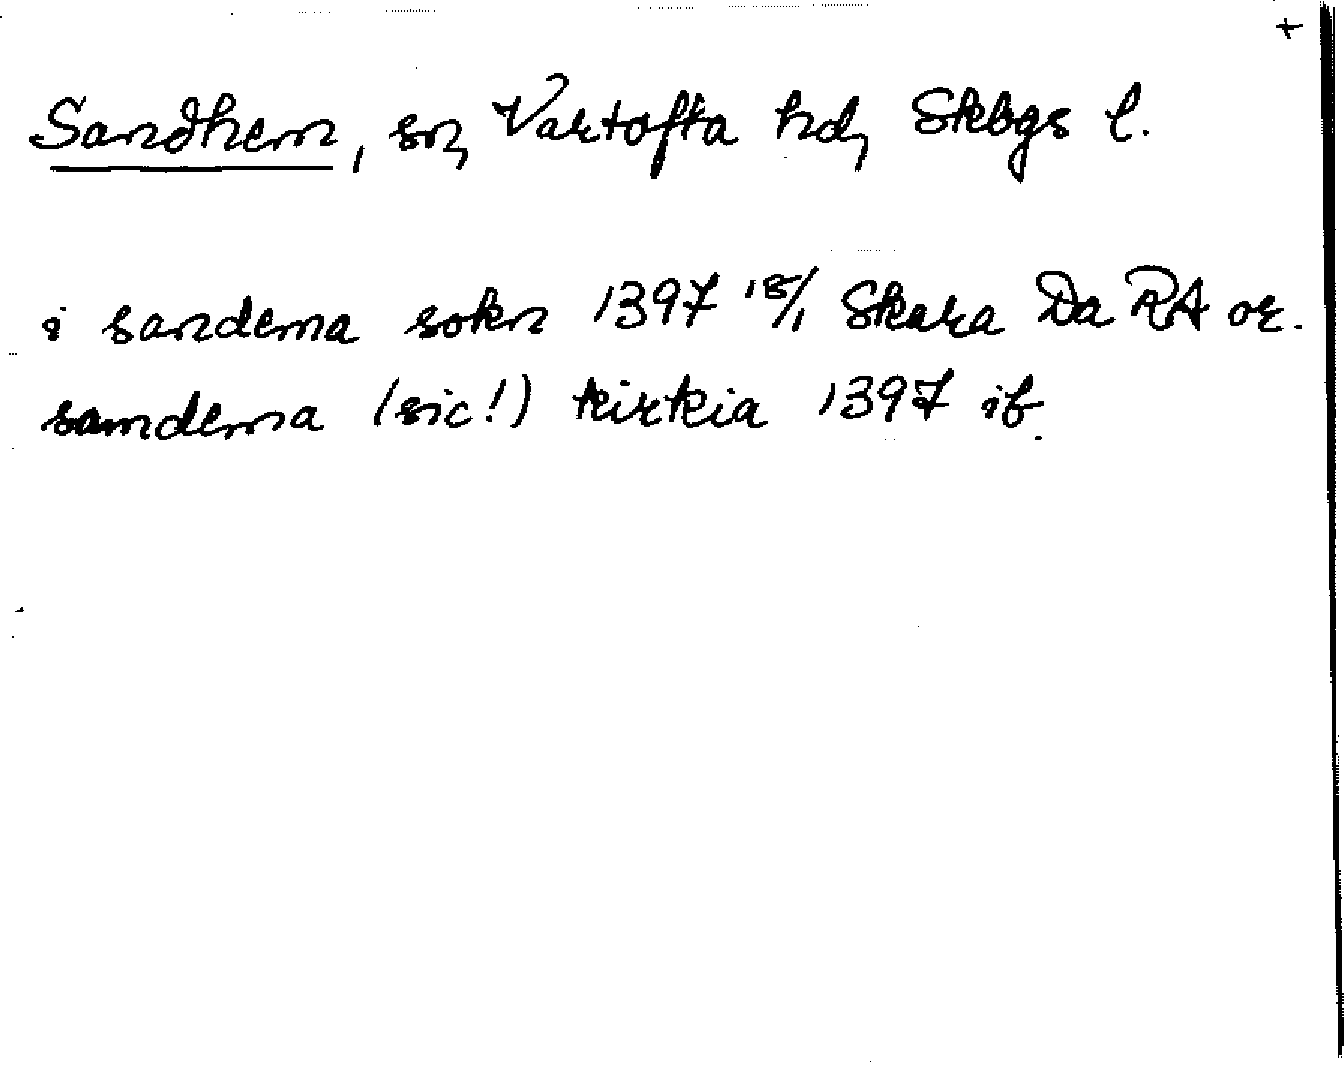 +
Sandhem, sn, Vartofta hd, Skbgs l.
i sandema sokn 1397 18/1 Skara Da RA or.
samdema (sic!) kirkia 1397 ib.